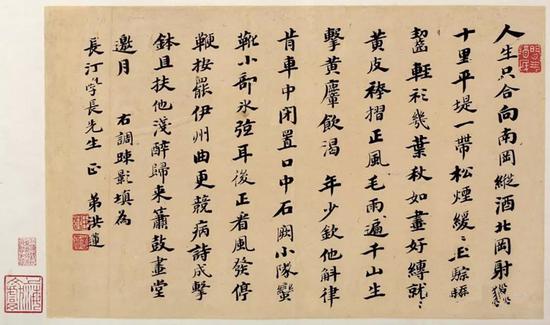 人生只合向南岡縱酒北岡射
十里平堤一帶松煙緩〻
齧輕衫幾葉秋如畫好縛就
黃皮袴褶正風毛雨遍千山生
擊黃麞飲渴 年少欽他斛律
昔車中閉置口中石闕小隊蠻
靴小部冰弦耳後正看風發停
鞭按罷伊州曲更競病詩成擊
鉢且扶他淺醉歸來簫鼓畫堂
邀月 右調疎影填為
長汀學長先生 正 弟洪